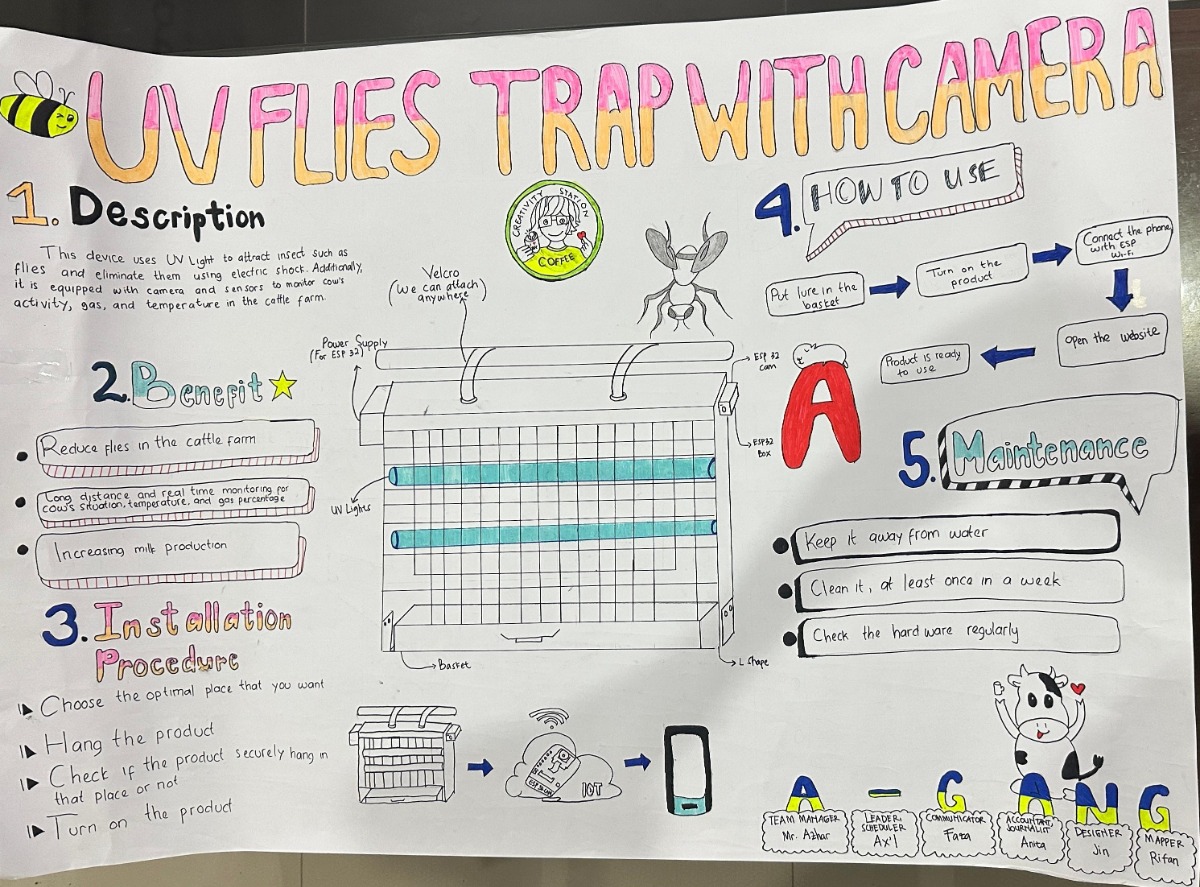 UV FLIES TRAP WITH CAMERA
1. Description
This device uses UV Light to attract insect such as
flies and eliminate them using electric shock. Additionally,
it is equipped with camera and sensors to monitor cow's
activity, gas, and temperature in the cattle farm.
2. Benefit
Reduce flies in the cattle farm
Long distance and real time monitoring for
cow's situation, temperature, and gas percentage
Increasing milk production
3. Installation
Procedure
Choose the optimal place that you want
Hang the product
Check if the product securely hang in
that place or not
Turn on the product
CREATIVITY STATION
COFFEE
Velcro
(We can attach
anywhere)
Power Supply
(For ESP 32)
ESP 32
cam
ESP32
Box
UV Lights
Basket
L Shape
IOT
A
4. HOW TO USE
Put lure in the
basket
Turn on the
product
Connect the phone
with ESP
Wi-Fi
Open the website
Product is ready
to use
5. Maintenance
Keep it away from water
Clean it, at least once in a week
Check the hard ware regularly
A - G A N G
TEAM MANAGER
Mr. Azhar
LEADER,
SCHEDULER
Ax'l
COMMUNICATOR
Faza
ACCOUNTANT,
JOURNALIST
Anita
DESIGNER
Jin
MAPPER
Rifan